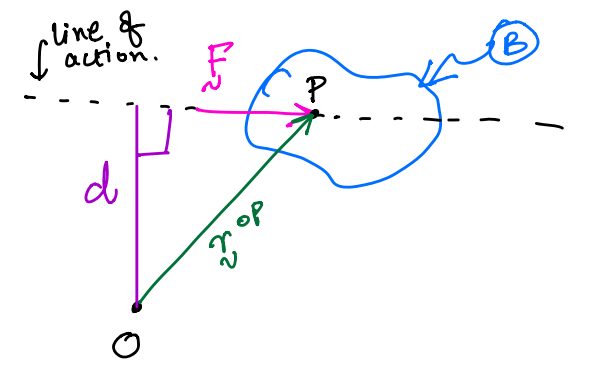 line of
action.
F
B
P
d
r^OP
O